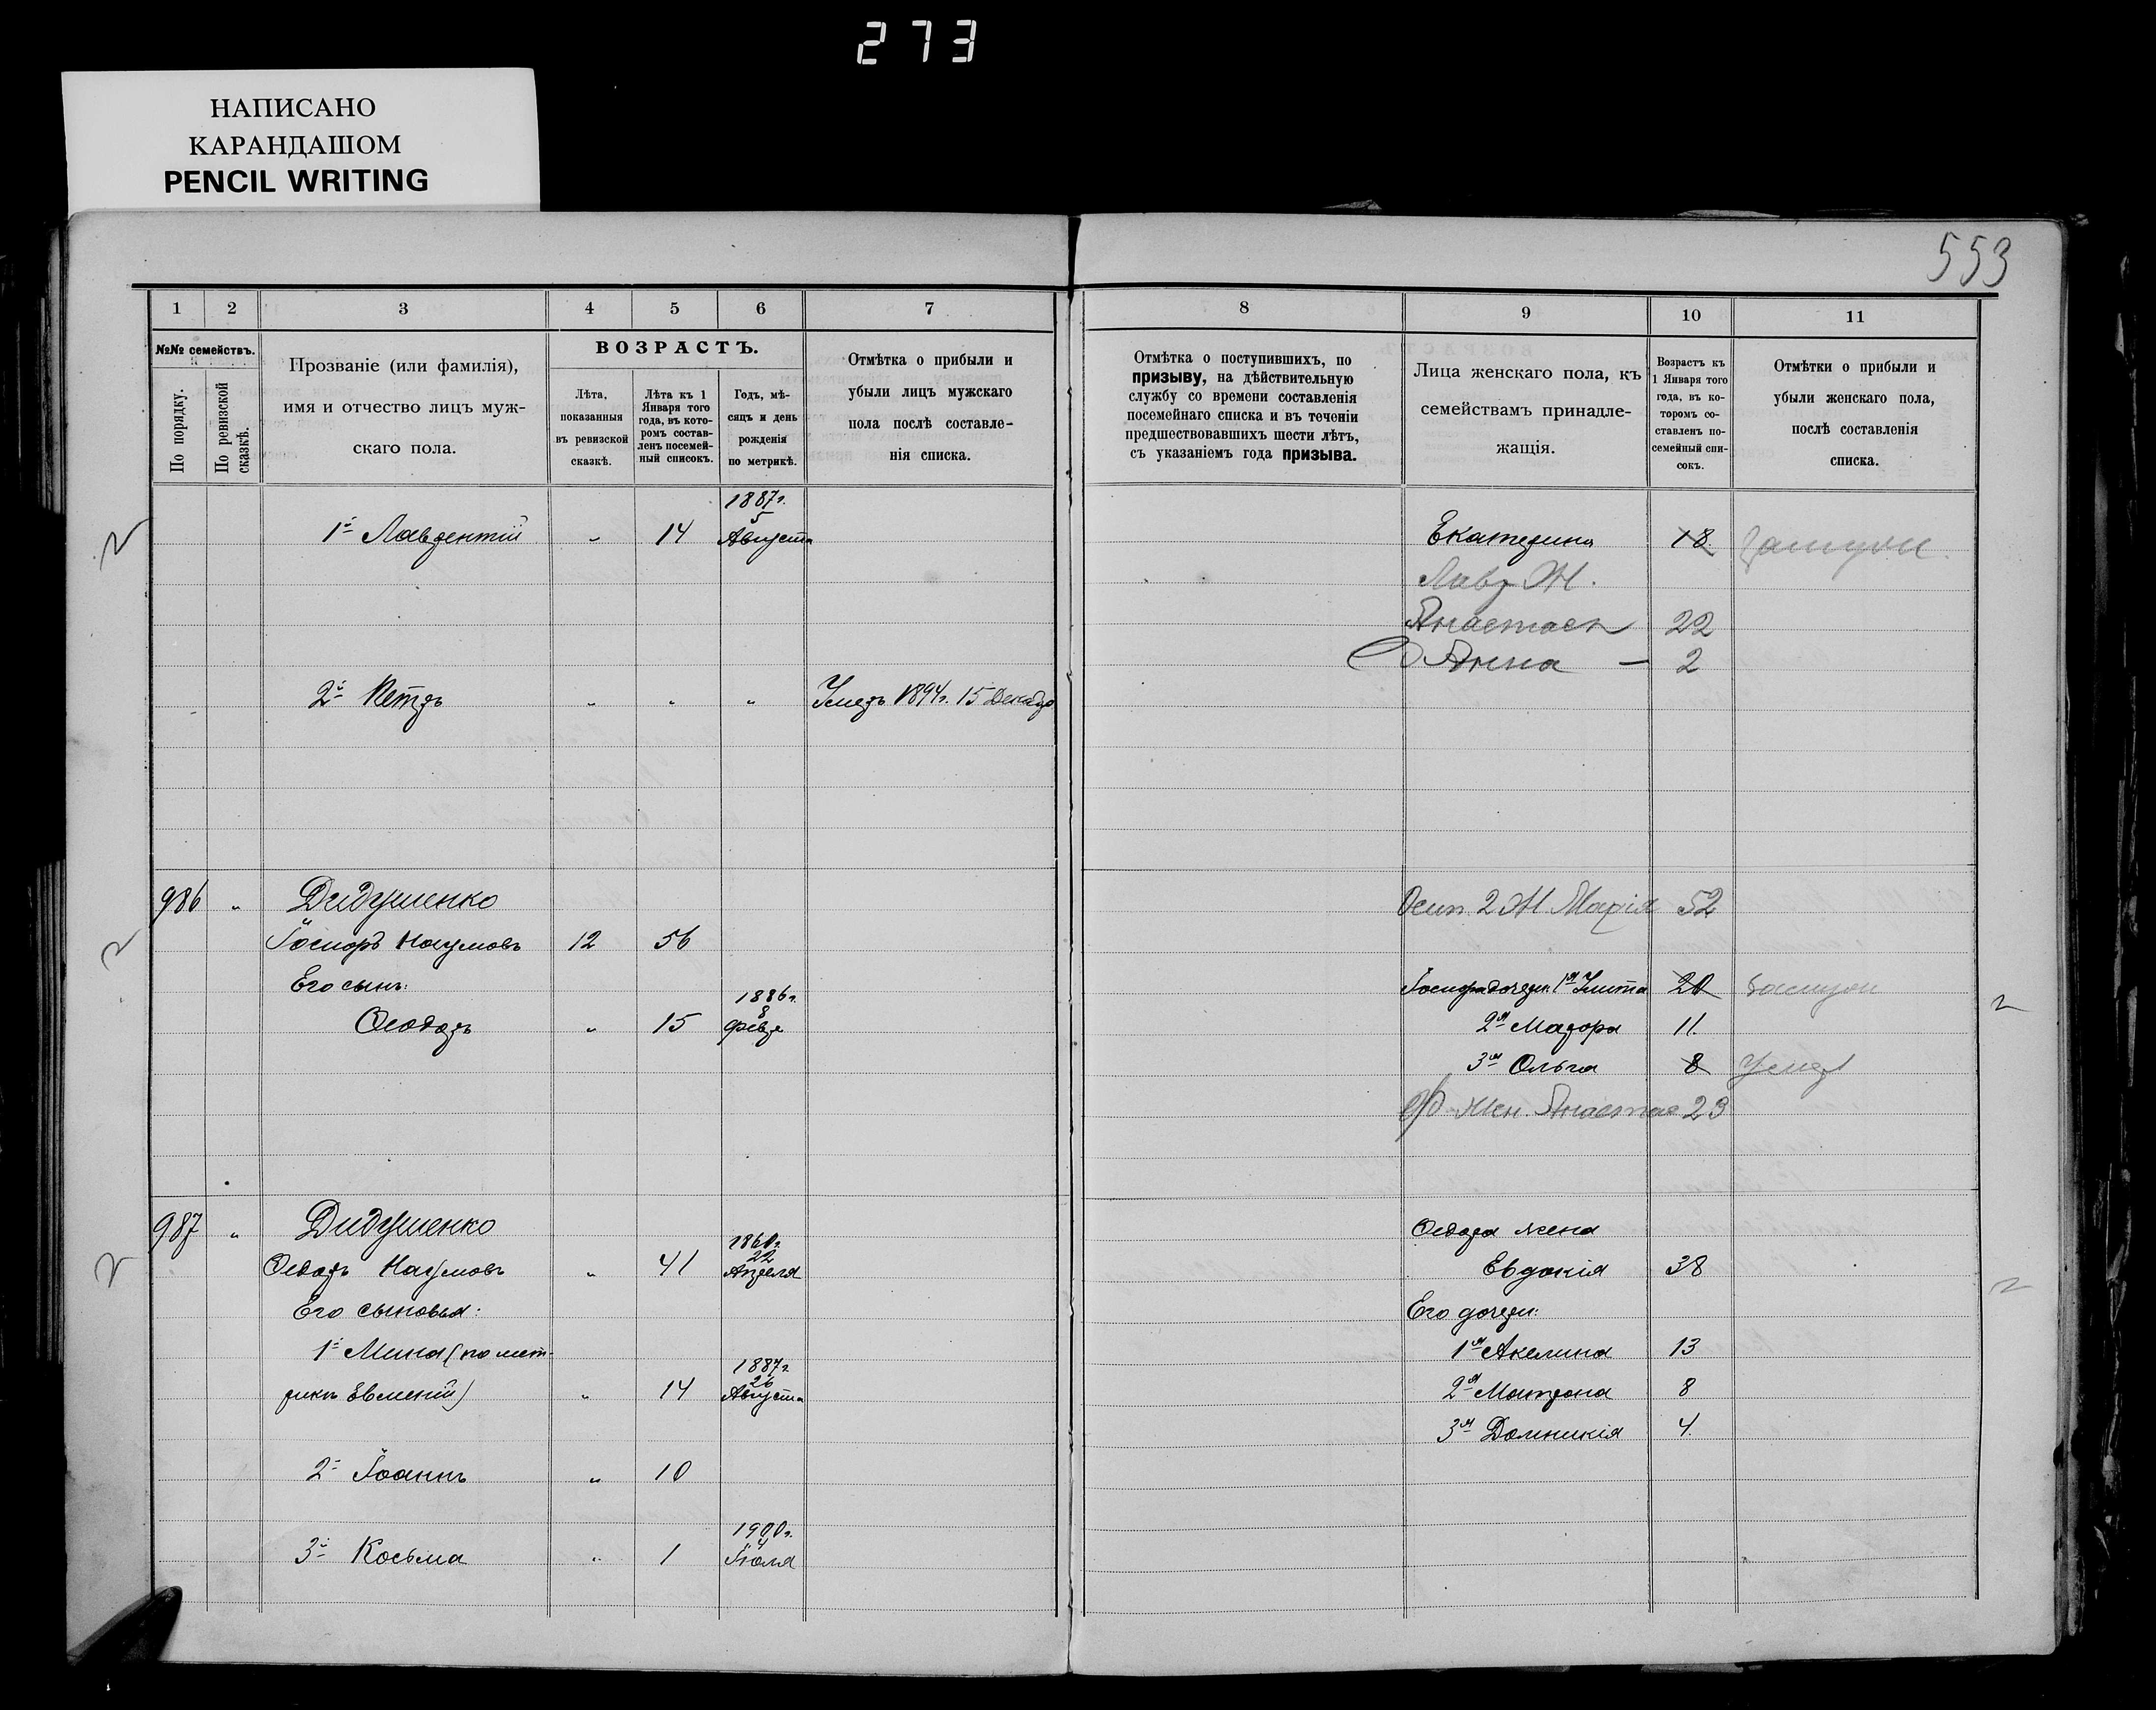 273
НАПИСАНО
КАРАНДАШОМ
PENCIL WRITING
553
1 2 3 4 5 6 7
№№ семействъ.
По порядку.
По ревизской сказкѣ.
Прозваніе (или фамилія),
имя и отчество лицъ муж-
скаго пола.
ВОЗРАСТЪ.
Лѣта,
показанныя
въ ревизской
сказкѣ.
Лѣта къ 1
Января того
года, въ кото-
ромъ состав-
ленъ посемей-
ный списокъ.
Годъ, мѣ-
сяцъ и день
рожденія
по метрикѣ.
Отмѣтка о прибыли и
убыли лицъ мужскаго
пола послѣ составле-
нія списка.
1887г.
5
1й Лаврентій " 14 Августа
2й Петръ " " " Умеръ 1894г. 15 Декабр
986 " Дидушенко
Іосифъ Наумовъ 12 56
Его сынъ:
1886г.
8
Ѳеодоръ " 15 Февр
987 " Дидушенко
1860г.
22
Ѳедоръ Наумовъ " 41 Апреля
Его сыновья:
1й Мина (по мет-
1887г.
26
рикѣ Евменій) " 14 Августа
2й Іоаннъ " 10
1900г.
4
3й Косьма " 1 Іюля
8 9 10 11
Отмѣтка о поступившихъ, по
призыву, на дѣйствительную
службу со времени составленія
посемейнаго списка и въ теченіи
предшествовавшихъ шести лѣтъ,
съ указаніемъ года призыва.
Лица женскаго пола, къ
семействамъ принадле-
жащія.
Возрастъ къ
1 Января того
года, въ ко-
торомъ со-
ставленъ по-
семейный спи-
сокъ.
Отмѣтки о прибыли и
убыли женскаго пола,
послѣ составленія
списка.
Екатерина 18 Замуж.
Лавр Ж.
Анастасія 22
Д Анна — 2
Осип. 2 Ж Марія 52
Іосифа дочери: 1я Улита 20 Замуж
2я Мавра 11
3я Ольга 8 Умер
Ф жен. Анастас 23
Ѳедора жена
Евдокія 38
Его дочери:
1я Акелина 13
2я Матрона 8
3я Домникія 4.